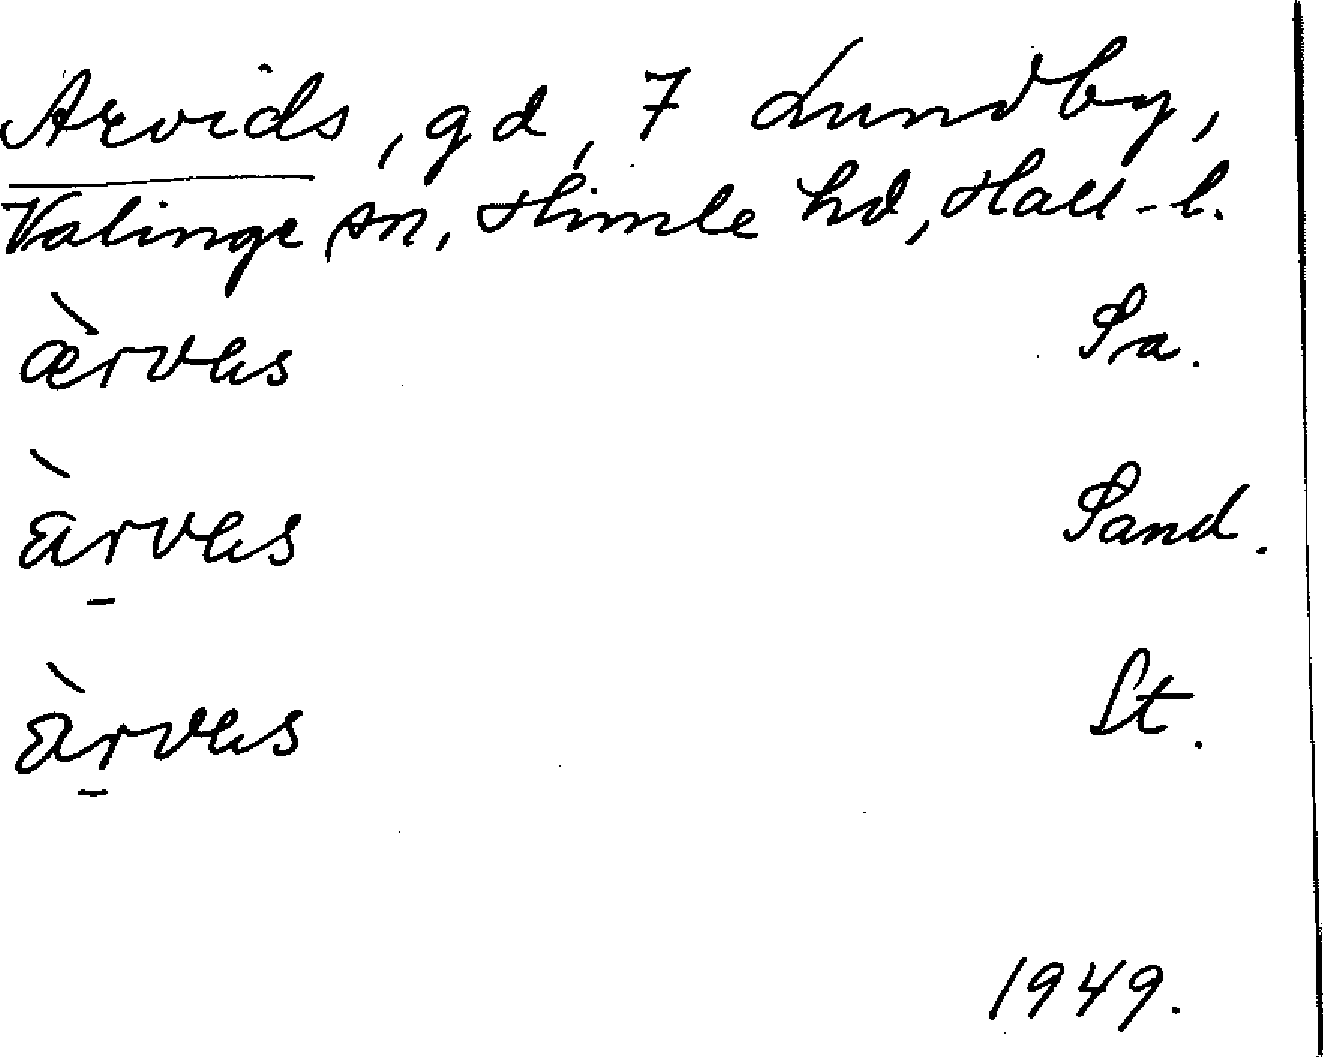 Arvids, gd, 7 Lundby,
Valinge sn, Himle hd, Hall-l.
æ̀rvɐs Sa.
àr̠vɐs Sand.
àr̠vɐs St.
1949.